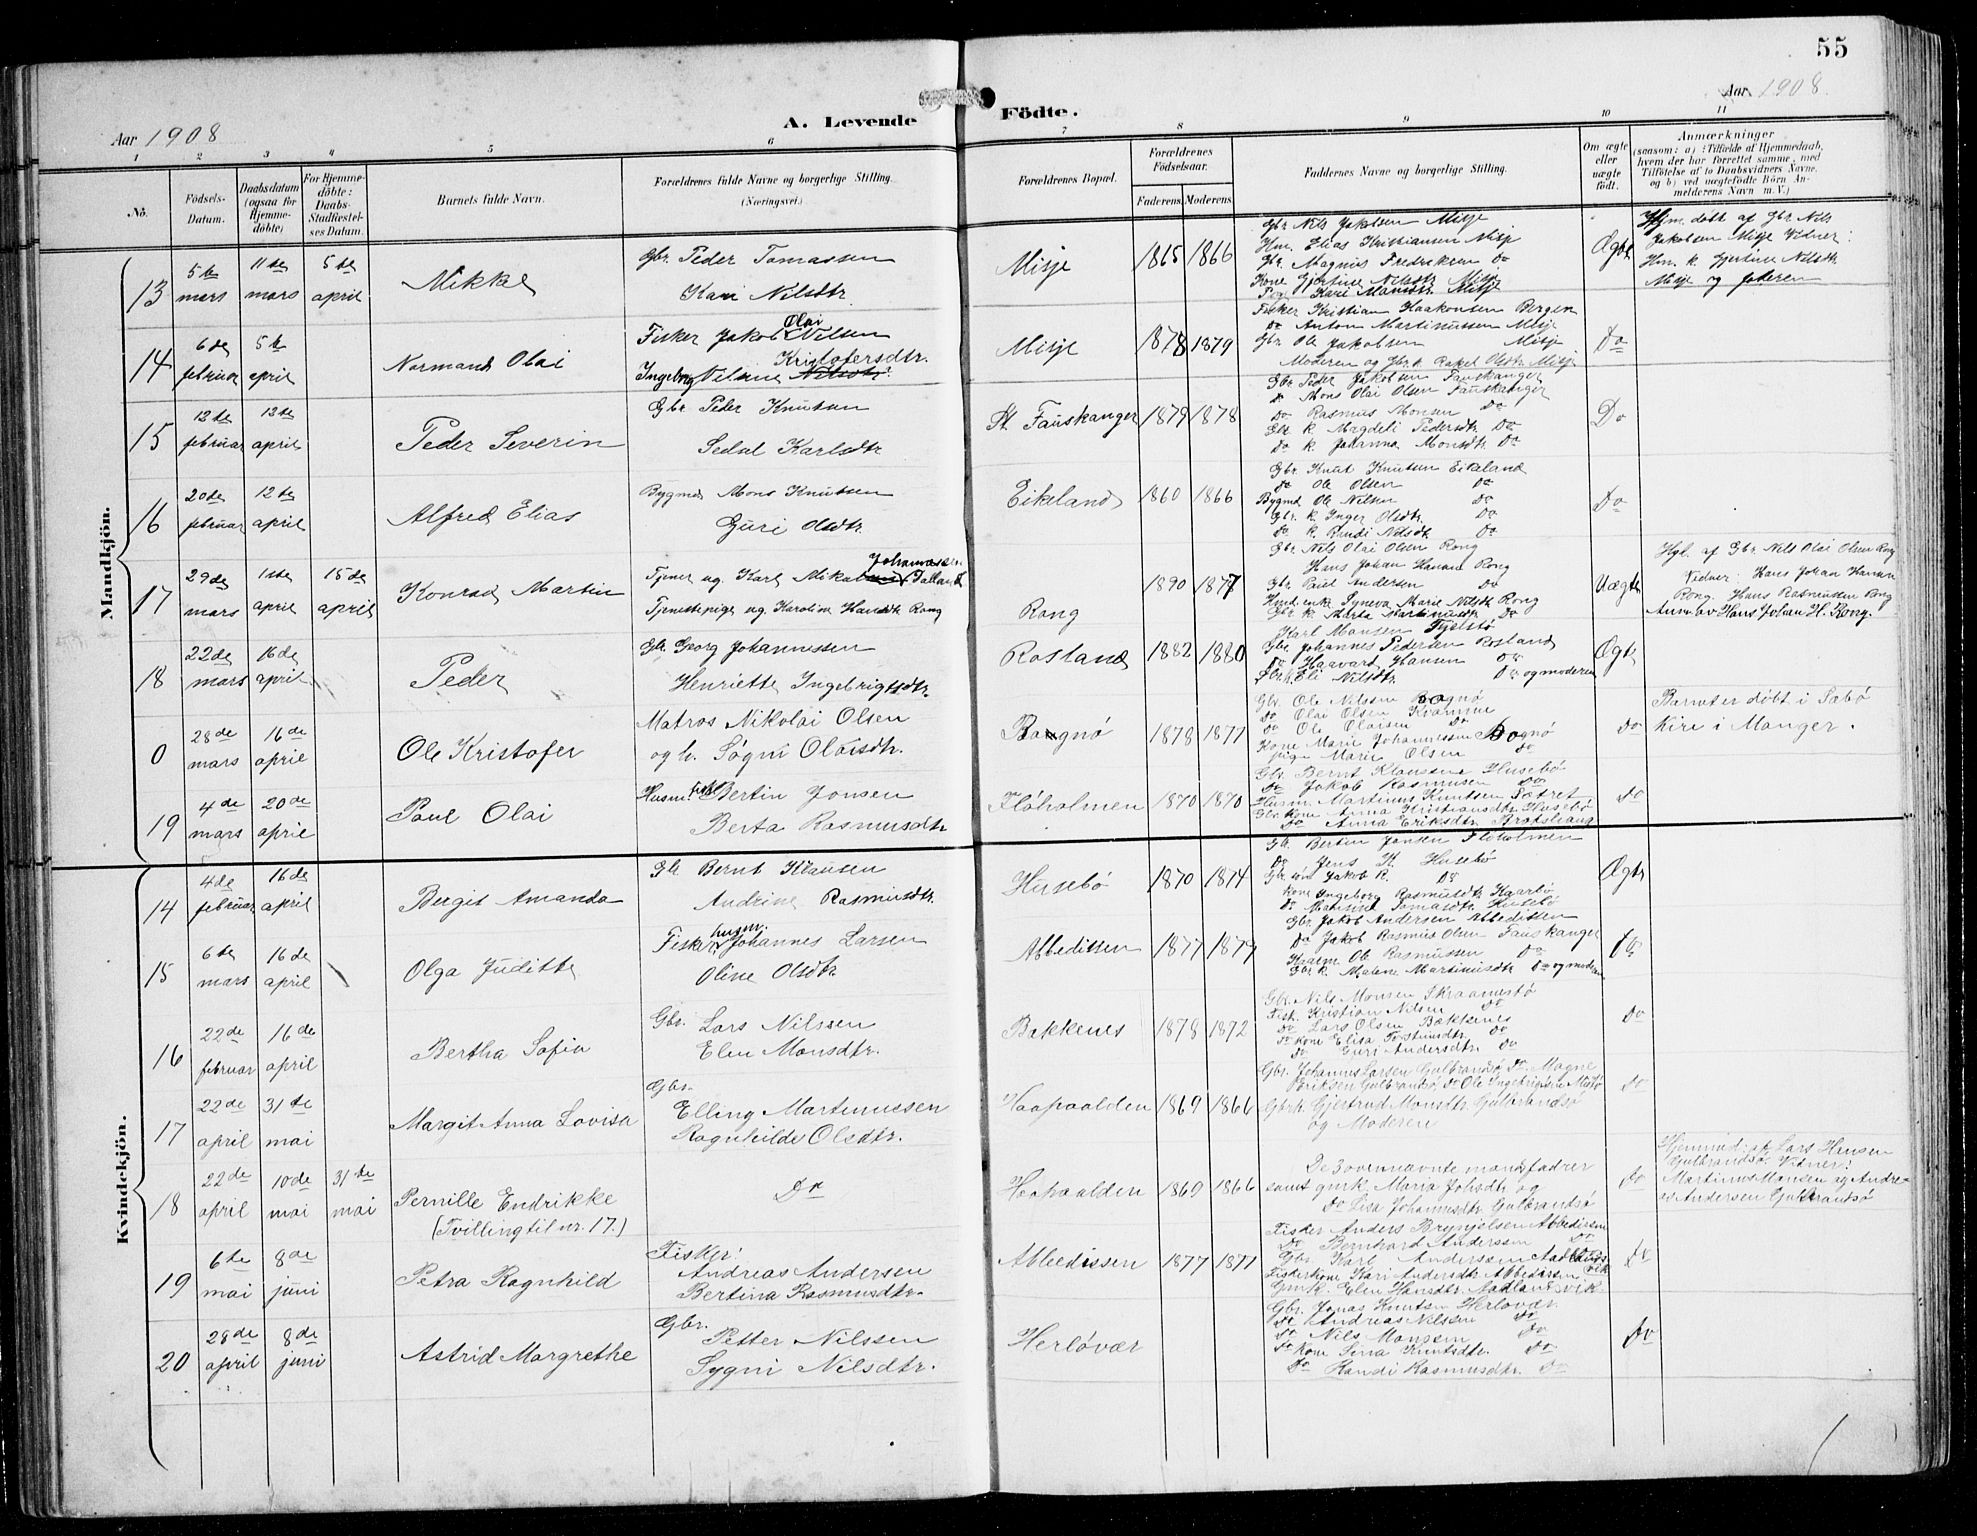 55
Aar 1908
A. Levende Födte.
Aar 1908.
1 2 3 4 5 6 7 8 9 10 11
No. Födsels-Datum. Daabsdatum (ogsaa for Hjemmedöbte) For Hjemmedöbte: Daabs-Stadfestelses Datum. Barnets fulde Navn. Forældrenes fulde Navne og borgerlige Stilling. (Næringsvei.) Forældrenes Bopæl. Forældrenes Födselsaar. Faderens. Moderens. Faddernes Navne og borgerlige Stilling. Om ægte eller uægte födt. Anmærkninger (saasom: a) i Tilfælde af Hjemmedaab, hvem der har forrettet samme, med Tilföielse af to Daabsvidners Navne, og b) ved uægtefödte Börn Anmelderens Navn m. V.)
Mandkjön.
13 5te mars 11te mars 5te april Mikkel Gbr. Peder Tomassen Kari Nilsdtr. Misje 1865 1866
Gbr. Nils Jakobsen Misje
Hm. Elias Kristiansen Misje
Gbr. Magnus Fredriksen Do
Kone Gjertine Nilsdtr. Misje
Pige Kari Monsdtr. Misje
Ægte
Hjm. döbt af Gbr. Nils
Jakobsen Misje Vidner:
Hm. k. Gjertine Nilsdtr.
Misje og faderen
14 6de februar 5te april Normann Olai Fisker Jakob Olai Nilsen Ingeborg Kristofersdtr. Misje 1878 1879
Fisker Kristian Haakonsen Bergen
Do Anton Martinussen Misje
Gbr. Ole Jakobsen Misje
Moderen og Gbr. k. Rakel Olsdtr. Misje
Do
15 12te februar 12te april Peder Severin Gbr. Peder Knutsen Karlsdtr. St. Fauskanger 1879 1878
Gbr. Peder Jakobsen Fauskanger
Do Mons Olai Olsen Fauskanger
Do Rasmus Monsen Do
Gbr. k. Magdeli Pedersdtr. Do
Do k. Johanna Monsdtr. Do
Do
16 20de februar 12te april Alfred Elias Bygmd. Mons Knutsen Guri Olsdtr. Eikeland 1860 1866
Gbr. Knut Knutsen Eikeland
Do Ole Olsen Do
Bygmd. Ole Nilsen Do
Gbr. k. Inger Olsdtr. Do
Do k. Randi Nilsdtr. Do
Do
17 29de mars 1ste april 15de april Konrad Martin Tjener ug. Karl Mikal Johannesen Tjenestepige ug. Karoline Hansdtr. Rong Rong 1890 1877
Gbr. Nils Olai Olsen Rong
Hans Johan Hansen Rong
Gbr. Paul Andersen Do
Husd. enk. Syneva Marie Nilsdtr. Rong
Gbr. k. Marta Martinusdtr. Do
Uægte
Hgl. af Gbr. Nils Olai Olsen Rong
Vidner: Hans Johan Hansen
Rong. Hans Rasmussen Rong
Anm. av Hans Johan H. Rong.
18 22de mars 16de april Peder Gbr. Georg Johannessen Henriette Ingebrigtsdtr. Rosland 1882 1880
Karl Monsen Fjelstö
Gbr. Johannes Pedersen Rosland
Do Haavard Hansen Do
Gbr. k. Eli Nilsdtr. Do og moderen
Ægte
0 28de mars 16de april Ole Kristofer Matros Nikolai Olsen og h. Sögni Olaisdtr. Bognö 1878 1877
Gbr. Ole Nilssen Bognö
Do Olai Olsen Kvamme
Do Ole Olaisen Do
Kone Marie Johannessen Bognö
pige Marie Olsen Do
Do
Barnet er döbt i Sæbö
Kirke i Manger.
19 4de mars 20de april Paul Olai Husm. Bertin Jonsen Berta Rasmusdtr. Flöholmen 1870 1870
Gbr. Bernt Klaussen Husebö
Do Jakob Rasmusen Do
Husm. Martinus Knutsen Sætret
Gbr. kone Anna Kristiansdtr. Husebö
Do Anna Eriksdtr.
Do
Kvindekjön.
14 4de februar 16de april Bergit Amanda Gbr. Bernt Klausen Andrine Rasmusdtr. Husebö 1870 1874
Gbr. Bertin Jonsen Flöholmen
Do Jens K. Husebö
Gbr. sön Jakob R. Do
Kone Ingeborg Rasmusdtr. Kaarbö
Do Tomasdtr. Husebö
Ægte
15 6te mars 16de april Olga Juditte Fisker husm. Johannes Larsen Oline Olsdtr. Abbedissen 1877 1877
Gbr. Jakob Andersen Abbedissen
Do Jakob Rasmus Olsen Fauskanger
Ole Rasmussen Do
Gbr. k. Malene Martinusdtr. Do og moderen
Do
16 22de februar 16de april Bertha Sofia Gbr. Lars Nilssen Elen Monsdtr. Bakkenes 1878 1872
Gbr. Nils Monsen Skraamestö
Fisk. Kristian Nilsen Do
Do Lars Olsen Bakkenes
Do kone Elisa Torstensdtr. Do
Do Guri Andersdtr. Do
Do
17 22de april 31te mai Margit Anna Lovisa Gbr. Elling Martinussen Ragnhilde Olsdtr. Haapaalden 1869 1866
Gbr. Johannes Larsen Gulbrandsö Do Magne
Eriksen Gulbrandsö Do Ole Ingebrigtsen Mistö
Gbr. k. Gjertrud Monsdtr. Gulbrandsö
og Moderen
Do
18 22de april 10de mai 31te mai Pernille Endrikke (Tvilling til nr. 17.) Do Haapaalden 1869 1866
De 3 ovennævnte mandsfadrer
samt gmk. Maria Johsdtr. og
Do Lisa Johannesdtr. Gulbrandsö
Do
Hjemmed. af Lars Hansen
Gulbrandsö. Vidner:
Martinus Monsen og Andre-
as Andersen Gulbrandsö
19 6te mai 8de juni Petra Ragnhild Fisker Andreas Andersen Bertina Rasmusdtr. Abbedissen 1877 1877
Fisker Anders Brynjelsen Abbedissen
Do Bernhard Anderssen Do
Gbr. Karl Anderssen Aadlandsvik
Fiskerkone Kari Andersdtr. Abbedissen
Gmk. Elen Hansdtr. Aadlandsvik.
Do
20 28de april 8de juni Astrid Margrethe Gbr. Petter Nilssen Sygni Nilsdtr. Herlövær
Gbr. Jonas Knutsen Herlövær
Do Andreas Nilssen Do
Do Nils Monsen Do
Do kone Sina Knutsdtr. Do
Do Randi Rasmusdtr. Do
Do